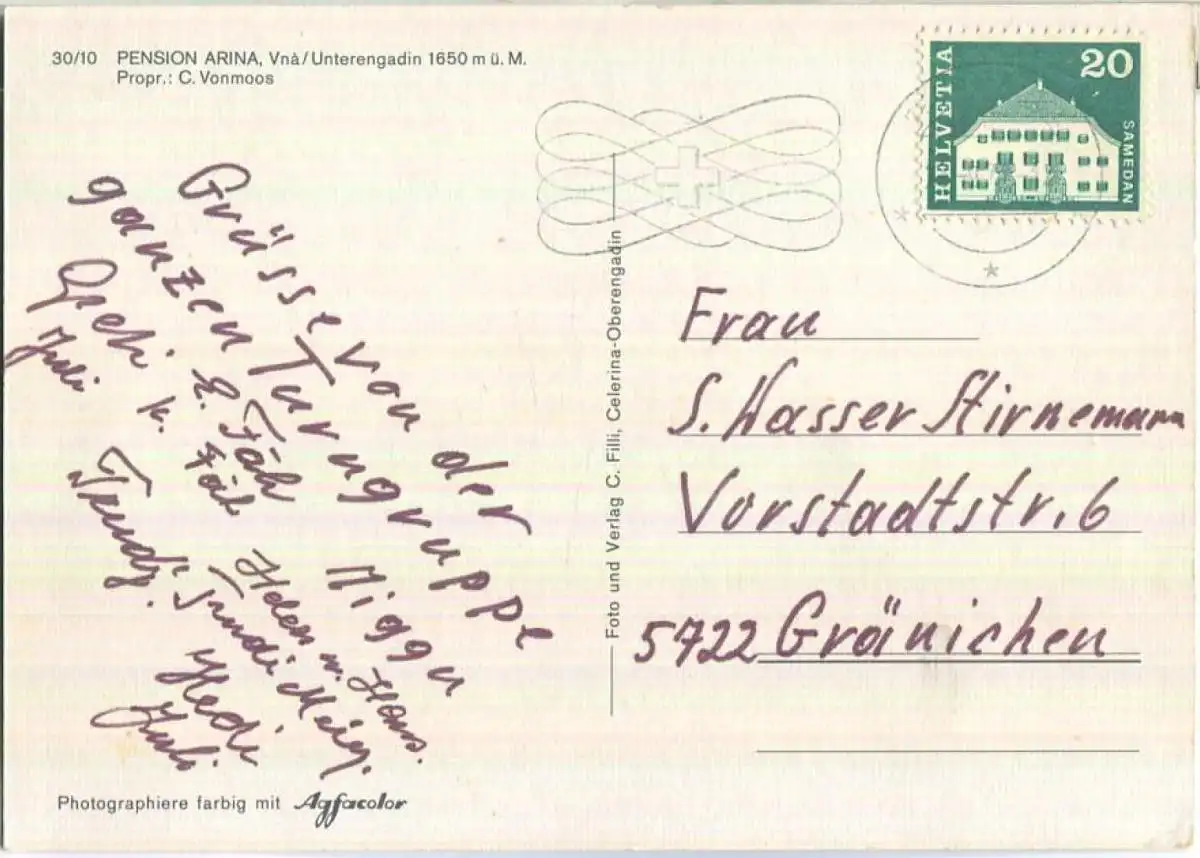 30/10 PENSION ARINA, Vnà/Unterengadin 1650 m ü. M.
Propr.: C. Vonmoos
HELVETIA
20
SAMEDAN
Grüsse von der
ganzen Turngruppe
Miggu
Helen u. Hans.
Trudi
Hedi
Foto und Verlag C. Filli, Celerina-Oberengadin
Frau
S. Wasser Stirnemann
Vorstadtstr. 6
5722 Gränichen
Photographiere farbig mit Agfacolor